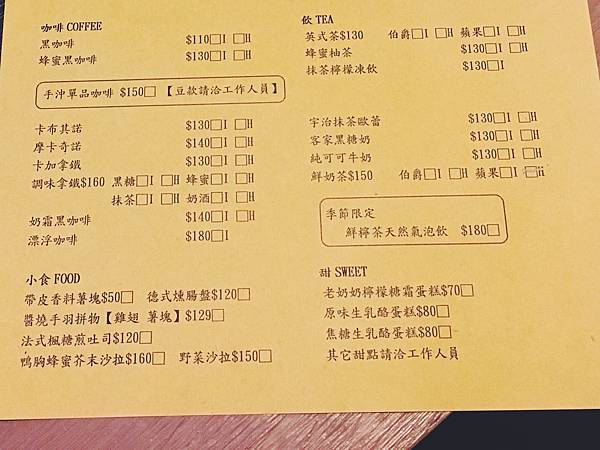 咖啡 COFFEE
黑咖啡 $110□I □H
蜂蜜黑咖啡 $130□I □H
手沖單品咖啡 $150□ 【豆款請洽工作人員】
卡布其諾 $130□I □H
摩卡奇諾 $140□I □H
卡加拿鐵 $130□I □H
調味拿鐵$160 黑糖□I □H 蜂蜜□I □H
抹茶□I □H 奶酒□I □H
奶霜黑咖啡 $140□I □H
漂浮咖啡 $180□I
小食 FOOD
帶皮香料薯塊$50□ 德式燻腸盤$120□
醬燒手羽拼物【雞翅 薯塊】$129□
法式楓糖煎吐司$120□
鴨胸蜂蜜芥末沙拉$160□ 野菜沙拉$150□
飲 TEA
英式茶$130 伯爵□I □H 蘋果□I □H
蜂蜜柚茶 $130□I □H
抹茶檸檬凍飲 $130□I
宇治抹茶歐蕾 $130□I □H
客家黑糖奶 $130□I □H
純可可牛奶 $130□I □H
鮮奶茶$150 伯爵□I □H 蘋果□I □ii
季節限定
鮮檸茶天然氣泡飲 $180□
甜 SWEET
老奶奶檸檬糖霜蛋糕$70□
原味生乳酪蛋糕$80□
焦糖生乳酪蛋糕$80□
其它甜點請洽工作人員